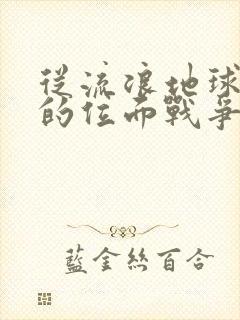 從流浪地球
的位面戰爭
藍金絲百合